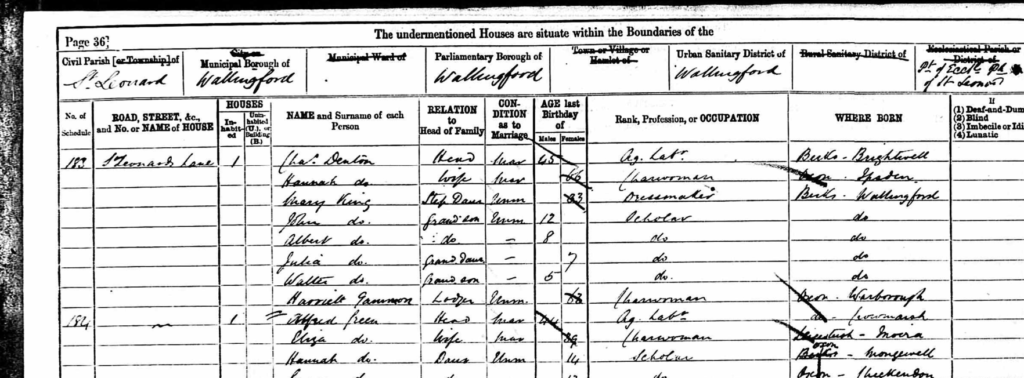 The undermentioned Houses are situate within the Boundaries of the
Page 36]
Civil Parish [or Township] of
St Leonard
City or Municipal Borough of
Wallingford
Municipal Ward of
Parliamentary Borough of
Wallingford
Town or Village or Hamlet of
Urban Sanitary District of
Wallingford
Rural Sanitary District of
Ecclesiastical Parish or District of
Pt of Eccl Ph of St Leonard
No. of Schedule
ROAD, STREET, &c., and No. or NAME of HOUSE
HOUSES
Inhabited
Uninhabited (U.), or Building (B.)
NAME and Surname of each Person
RELATION to Head of Family
CONDITION as to Marriage
AGE last Birthday of
Males
Females
Rank, Profession, or OCCUPATION
WHERE BORN
If
(1) Deaf-and-Dum
(2) Blind
(3) Imbecile or Idi
(4) Lunatic
183 St Leonards Lane 1 Chas. Denton Head Mar 45 Ag. Labr Berks - Brightwell
Hannah do. Wife Mar 66 Charwoman Oxon - Ipsden
Mary King Step Daur Unm 23 Dressmaker Berks - Wallingford
John do Grandson Unm 12 Scholar do
Albert do. do. - 8 do do
Julia do. Grand Daur - 7 do do
Walter do. Grandson - 5 do. do
Harriett Gammon Lodger Unm. 68 Charwoman Oxon - Warborough
184 1 Alfred Green Head Mar 44 Ag. Labr do - Crowmarsh
Eliza do. Wife Mar 39 Charwoman - Moira
Hannah do. Daur Unm 14 Scholar Oxon - Mongewell
do Oxon - Checkendon